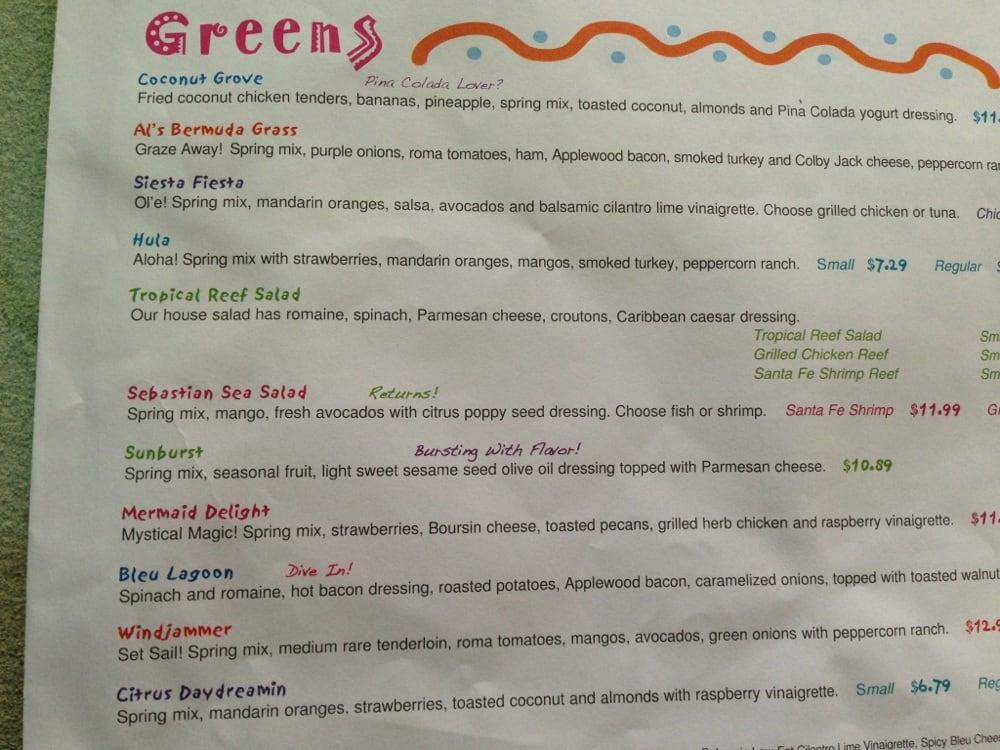 Greens
Coconut Grove Pina Colada Lover?
Fried coconut chicken tenders, bananas, pineapple, spring mix, toasted coconut, almonds and Pina Colada yogurt dressing. $11.
Al's Bermuda Grass
Graze Away! Spring mix, purple onions, roma tomatoes, ham, Applewood bacon, smoked turkey and Colby Jack cheese, peppercorn
Siesta Fiesta
Ol'e! Spring mix, mandarin oranges, salsa, avocados and balsamic cilantro lime vinaigrette. Choose grilled chicken or tuna.
Hula
Aloha! Spring mix with strawberries, mandarin oranges, mangos, smoked turkey, peppercorn ranch. Small $7.29 Regular
Tropical Reef Salad
Our house salad has romaine, spinach, Parmesan cheese, croutons, Caribbean caesar dressing.
Tropical Reef Salad
Grilled Chicken Reef
Santa Fe Shrimp Reef
Sebastian Sea Salad Returns!
Spring mix, mango, fresh avocados with citrus poppy seed dressing. Choose fish or shrimp. Santa Fe Shrimp $11.99
Sunburst Bursting With Flavor!
Spring mix, seasonal fruit, light sweet sesame seed olive oil dressing topped with Parmesan cheese. $10.89
Mermaid Delight
Mystical Magic! Spring mix, strawberries, Boursin cheese, toasted pecans, grilled herb chicken and raspberry vinaigrette. $11.
Bleu Lagoon Dive In!
Spinach and romaine, hot bacon dressing, roasted potatoes, Applewood bacon, caramelized onions, topped with toasted walnut
Windjammer
Set Sail! Spring mix, medium rare tenderloin, roma tomatoes, mangos, avocados, green onions with peppercorn ranch. $12.9
Citrus Daydreamin
Spring mix, mandarin oranges. strawberries, toasted coconut and almonds with raspberry vinaigrette. Small $6.79 Reg
Cilantro Lime Vinaigrette, Spicy Bleu